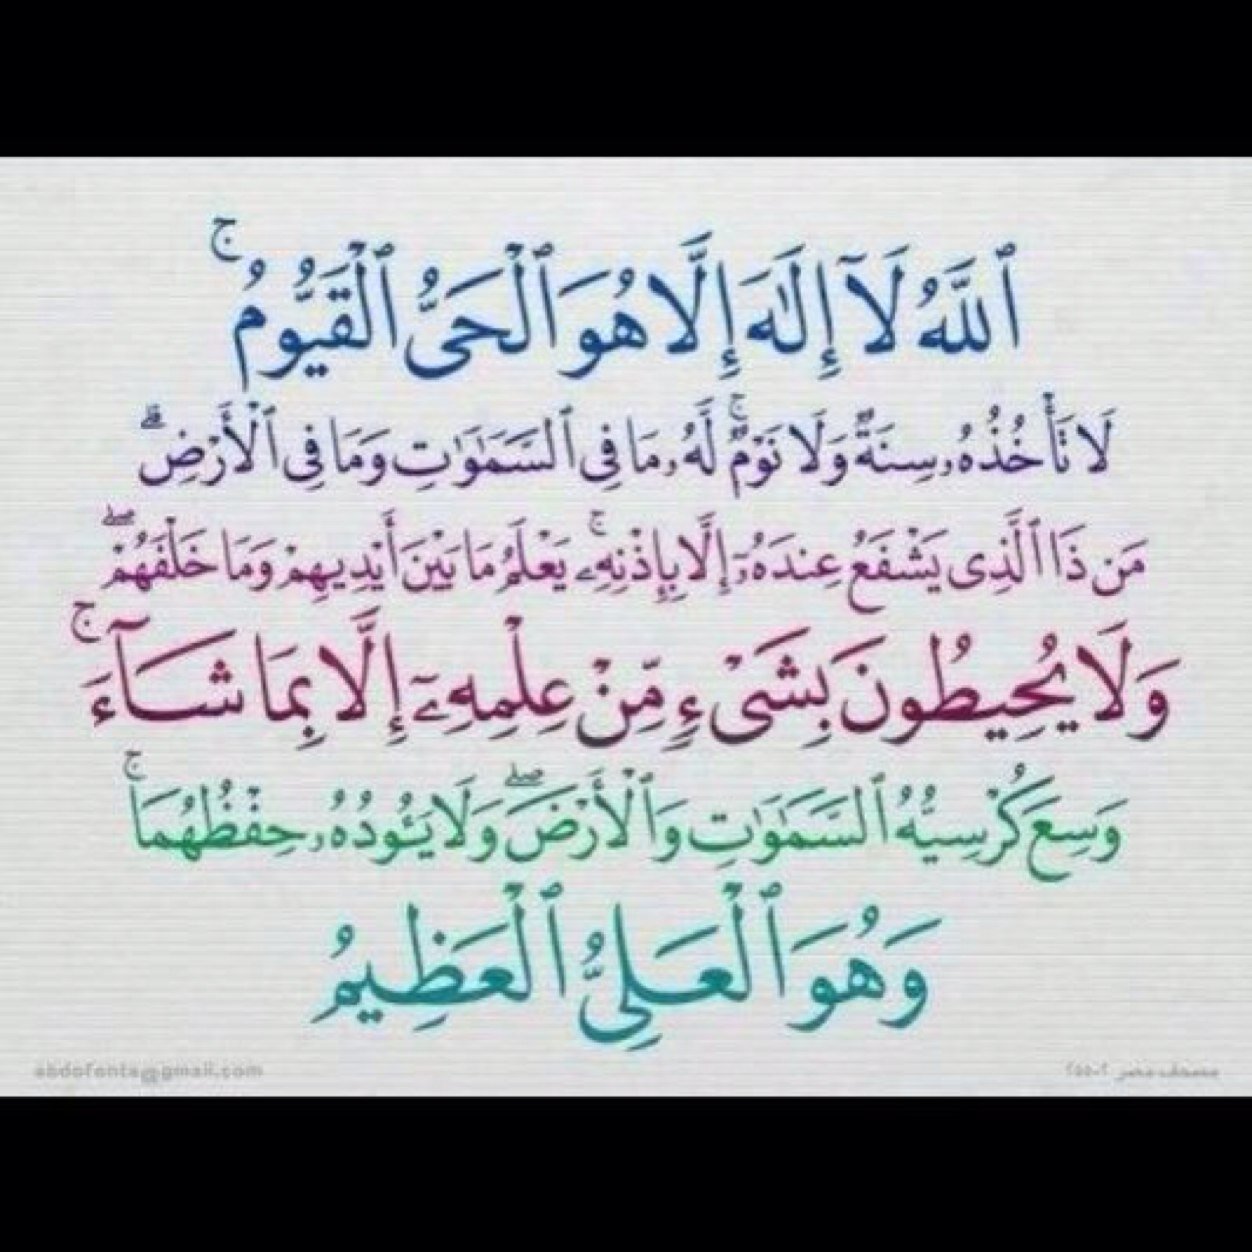 ٱللَّهُ لَآ إِلَٰهَ إِلَّا هُوَ ٱلْحَىُّ ٱلْقَيُّومُ ۚ
لَا تَأْخُذُهُۥ سِنَةٌ وَلَا نَوْمٌ ۚ لَّهُۥ مَا فِى ٱلسَّمَٰوَٰتِ وَمَا فِى ٱلْأَرْضِ ۗ
مَن ذَا ٱلَّذِى يَشْفَعُ عِندَهُۥٓ إِلَّا بِإِذْنِهِۦ ۚ يَعْلَمُ مَا بَيْنَ أَيْدِيهِمْ وَمَا خَلْفَهُمْ ۖ
وَلَا يُحِيطُونَ بِشَىْءٍ مِّنْ عِلْمِهِۦٓ إِلَّا بِمَا شَآءَ ۚ
وَسِعَ كُرْسِيُّهُ ٱلسَّمَٰوَٰتِ وَٱلْأَرْضَ ۖ وَلَا يَـُٔودُهُۥ حِفْظُهُمَا ۚ
وَهُوَ ٱلْعَلِىُّ ٱلْعَظِيمُ
abdofonts@gmail.com
مصحف مصر ٢-٢٥٥